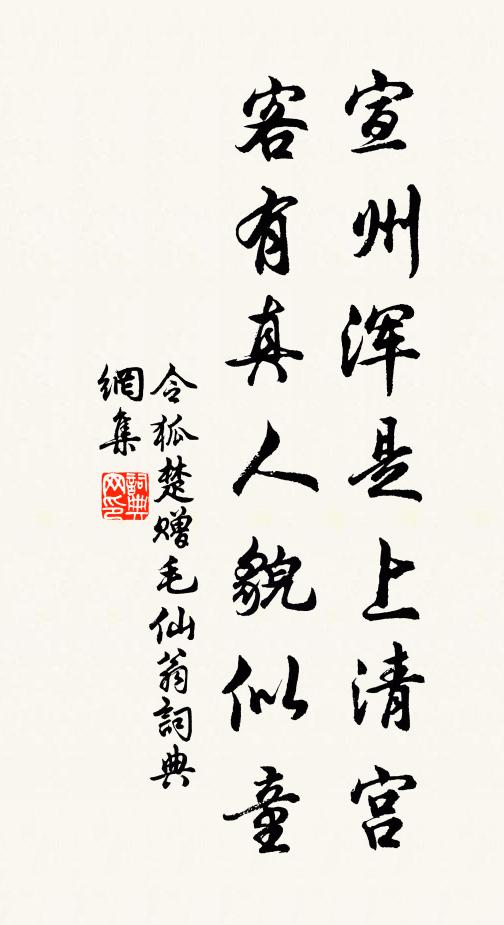 宣州浑是上清宫
客有真人貌似童
令狐楚赠毛仙翁詞典
網集
詞典
网印